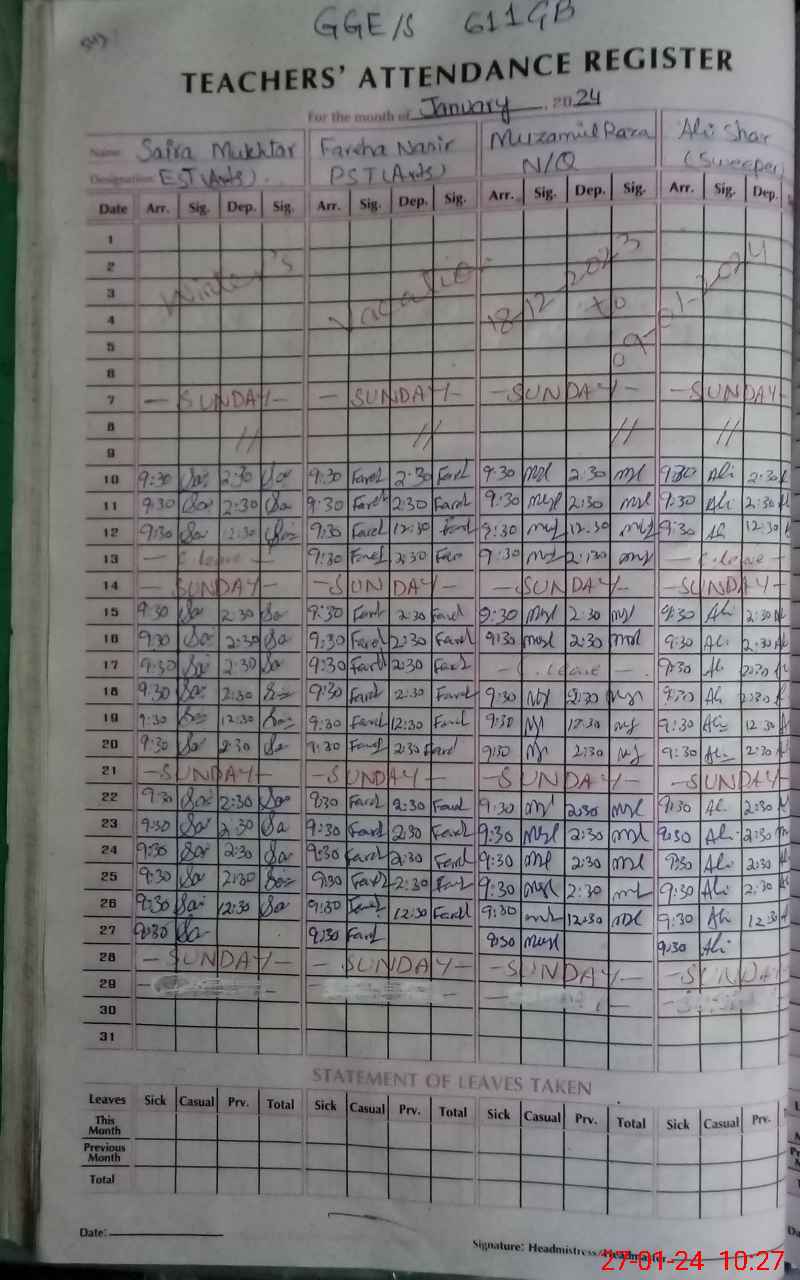 GGE/S 611GB
TEACHERS' ATTENDANCE REGISTER
For the month of January, 2024
Name Saira Mukhtar Fareha Nasir Muzamil Raza Ali Shar
Designation EST(Arts). PST(Arts) N/Q (Sweeper)
Date Arr. Sig. Dep. Sig. Arr. Sig. Dep. Sig. Arr. Sig. Dep. Sig. Arr. Sig. Dep.
1
2
3
4
Winter's Vacation 18-12-2023 to 09-01-2024
5
6
7 - SUNDAY- - SUNDAY- -SUNDAY- -SUNDAY-
8
9 // // // //
10 9:30 Sa 2:30 Sa 9:30 Fard 2:30 Fard 9:30 mzl 2:30 mzl 9:30 Ali 2:30
11 9:30 Sa 2:30 Sa 9:30 Fard 2:30 Fard 9:30 mzl 2:30 mzl 9:30 Ali 2:30
12 9:30 Sa 12:30 Sa 9:30 Fard 12:30 Fard 9:30 mzl 12:30 mzl 9:30 Ali 12:30
13 - C.leave - 9:30 Fard 2:30 Far 9:30 mzl 2:30 mzl - C.leave -
14 - SUNDAY- -SUNDAY- -SUNDAY- -SUNDAY-
15 9:30 Sa 2:30 Sa 9:30 Fard 2:30 Fard 9:30 mzl 2:30 mzl 9:30 Ali 2:30
16 9:30 Sa 2:30 Sa 9:30 Fard 2:30 Fard 9:30 mzl 2:30 mzl 9:30 Ali 2:30
17 9:30 Sa 2:30 Sa 9:30 Fard 2:30 Fard - C.leave - 9:30 Ali 2:30
18 9:30 Sa 2:30 Sa 9:30 Fard 2:30 Fard 9:30 mzl 2:30 mzl 9:30 Ali 2:30
19 9:30 Sa 12:30 Sa 9:30 Fard 12:30 Fard 9:30 mzl 12:30 mzl 9:30 Ali 12:30
20 9:30 Sa 2:30 Sa 9:30 Fard 2:30 Fard 9:30 mzl 2:30 mzl 9:30 Ali 2:30
21 -SUNDAY- -SUNDAY- -SUNDAY- -SUNDAY-
22 9:30 Sa 2:30 Sa 9:30 Fard 2:30 Fard 9:30 mzl 2:30 mzl 9:30 Ali 2:30
23 9:30 Sa 2:30 Sa 9:30 Fard 2:30 Fard 9:30 mzl 2:30 mzl 9:30 Ali 2:30
24 9:30 Sa 2:30 Sa 9:30 Fard 2:30 Fard 9:30 mzl 2:30 mzl 9:30 Ali 2:30
25 9:30 Sa 2:30 Sa 9:30 Fard 2:30 Fard 9:30 mzl 2:30 mzl 9:30 Ali 2:30
26 8:30 Sa 12:30 Sa 9:30 Fard 12:30 Fard 9:30 mzl 12:30 mzl 9:30 Ali 12:30
27 9:30 Sa 9:30 Fard 9:30 mzl 9:30 Ali
28 - SUNDAY- - SUNDAY- -SUNDAY- -SUNDAY
29
30
31
STATEMENT OF LEAVES TAKEN
Leaves Sick Casual Prv. Total Sick Casual Prv. Total Sick Casual Prv. Total Sick Casual Prv.
This Month
Previous Month
Total
Date:
Signature: Headmistress/Headmaster
27-01-24 10:27